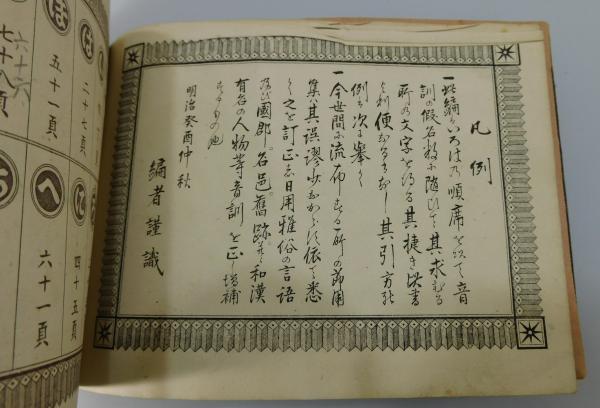 凡例
一此編ハいろはの順席を以て音
訓の假名数に随ひて其求むる
所の文字を得る其捷き此書
より便なるはなし其引方の
例を次に擧く
一今世間に流布する所の節用
集其誤謬少なからす依て悉
く之を訂正し日用雅俗の言語
及び國郡名邑舊跡并に和漢
有名の人物等音訓を正し増補
するもの也
明治癸酉仲秋
編者謹識
ほ
五十一頁
七十八頁
六十六
は
二十七頁
へ
六十一頁
四十五頁